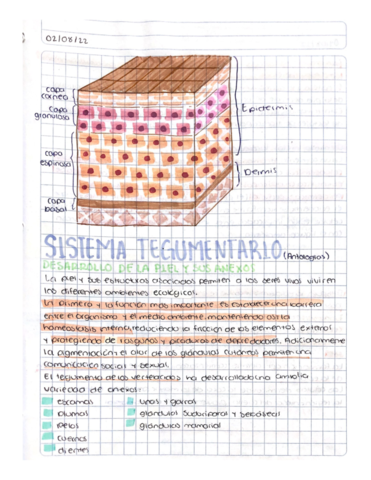 02/08/22
capa
cornea
capa
granulosa
Epidermis
capa
espinosa
Dermis
capa
basal
SISTEMA TEGUMENTARIO (Antologias)
DESARROLLO DE LA PIEL Y SUS ANEXOS
La piel y sus estructuras asociadas permiten a los seres vivos vivir en
los diferentes ambientes ecológicos.
La primera y la función mas importante es establecer una barrera
entre el organismo y el medio ambiente, manteniendo asi la
homeostasis interna, reduciendo la fracción de los elementos externos
y protegiendo de rasguños y picaduras de depredadores. Adicionalmente
la pigmentación el olor de las glándulas cutáneas permiten una
comunicación social y sexual.
El tegumento de los vertebrados ha desarrollado una amplia
variedad de anexos:
escamas
uñas y garras
plumas
glandulas sudoripara y sebaseas
pelos
glandulas mamarias
cuernos
dientes